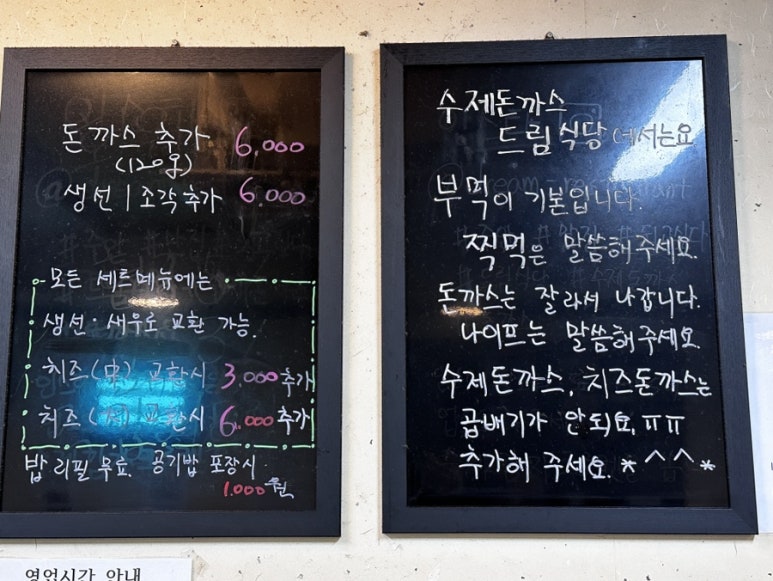 돈까스 추가 6,000
(120g)
생선 1조각 추가 6,000
모든 세트메뉴에는
생선·새우로 교환 가능.
치즈(中) 교환시 3,000 추가
치즈(大) 교환시 6,000 추가
밥 리필 무료. 공기밥 포장시
1,000원
수제돈까스
드림식당에서는요
부먹이 기본입니다.
찍먹은 말씀해주세요.
돈까스는 잘라서 나갑니다.
나이프는 말씀해주세요.
수제돈까스, 치즈돈까스는
곱배기가 안되요. ㅠㅠ
추가해 주세요. *^^*
영업시간 안내